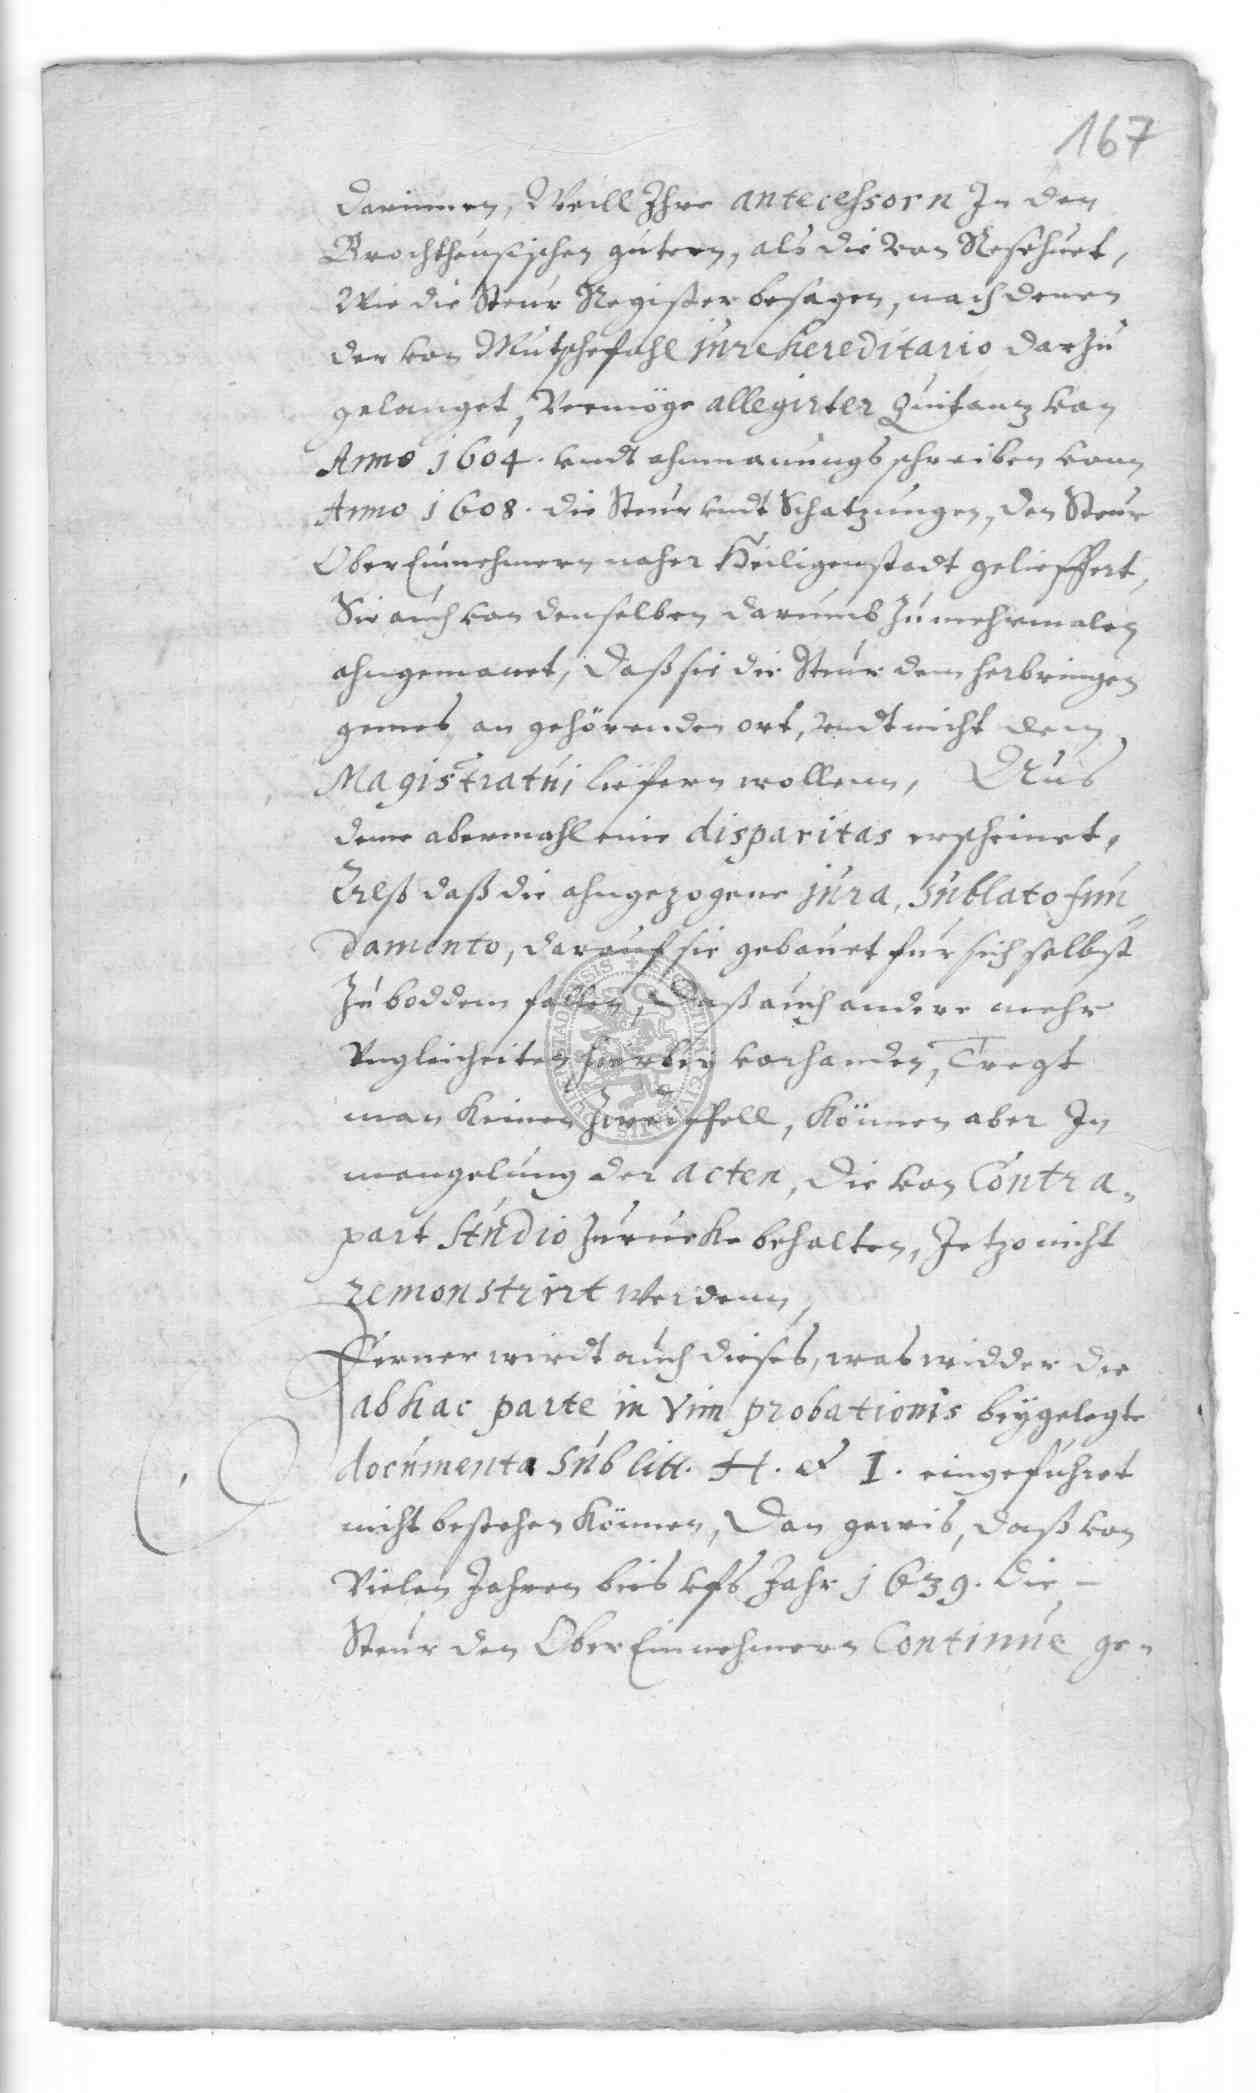 167
darinnen, Weill Ihre antecessorn In den
Brochtheusischen gutern, als die von Resehuet,
Wie die Steur Register besagen, nach denen
der von Mutschefahl jure hereditario darzu
gelanget, Vermöge allegirter Quitantz von
Anno 1604. undt ahnmanungs schreiben vom
Anno 1608. die Steur undt Schatzungen, den Steur
Ober Einnehmern naher Heiligenstadt gelieffert,
Sie auch von denselben darumb zu mehrmalen
ahngemanet, daß sie die Steur dem herbringen
gemes, an gehörenden ort, undt nicht dem
Magistratui liefern wollenn, Aus
deme abermahl eine disparitas erscheinet,
daß die ahngezogene jura, sublato fun„
damento, darauf sie gebauet fur sich selbst
zu boddem fallen, daß auch andere mehr
Ungleicheiten hierbei vorhanden, Tregt
man keinen Zweiffell, können aber In
mangelung der acten, die von Contra„
part studio zurucke behalten, Jetzo nicht
remonstrirt werdenn,
Ferner wirdt auch dieses, was widder die
ab hac parte in vim probationis beygelegte
documenta sub litt. H. et I. eingefuhret
nicht bestehen können, Dan gewis, daß von
Vielen Jahren bies ufs Jahr 1639. die –
Steur den Ober Einnehmern Continue ge„